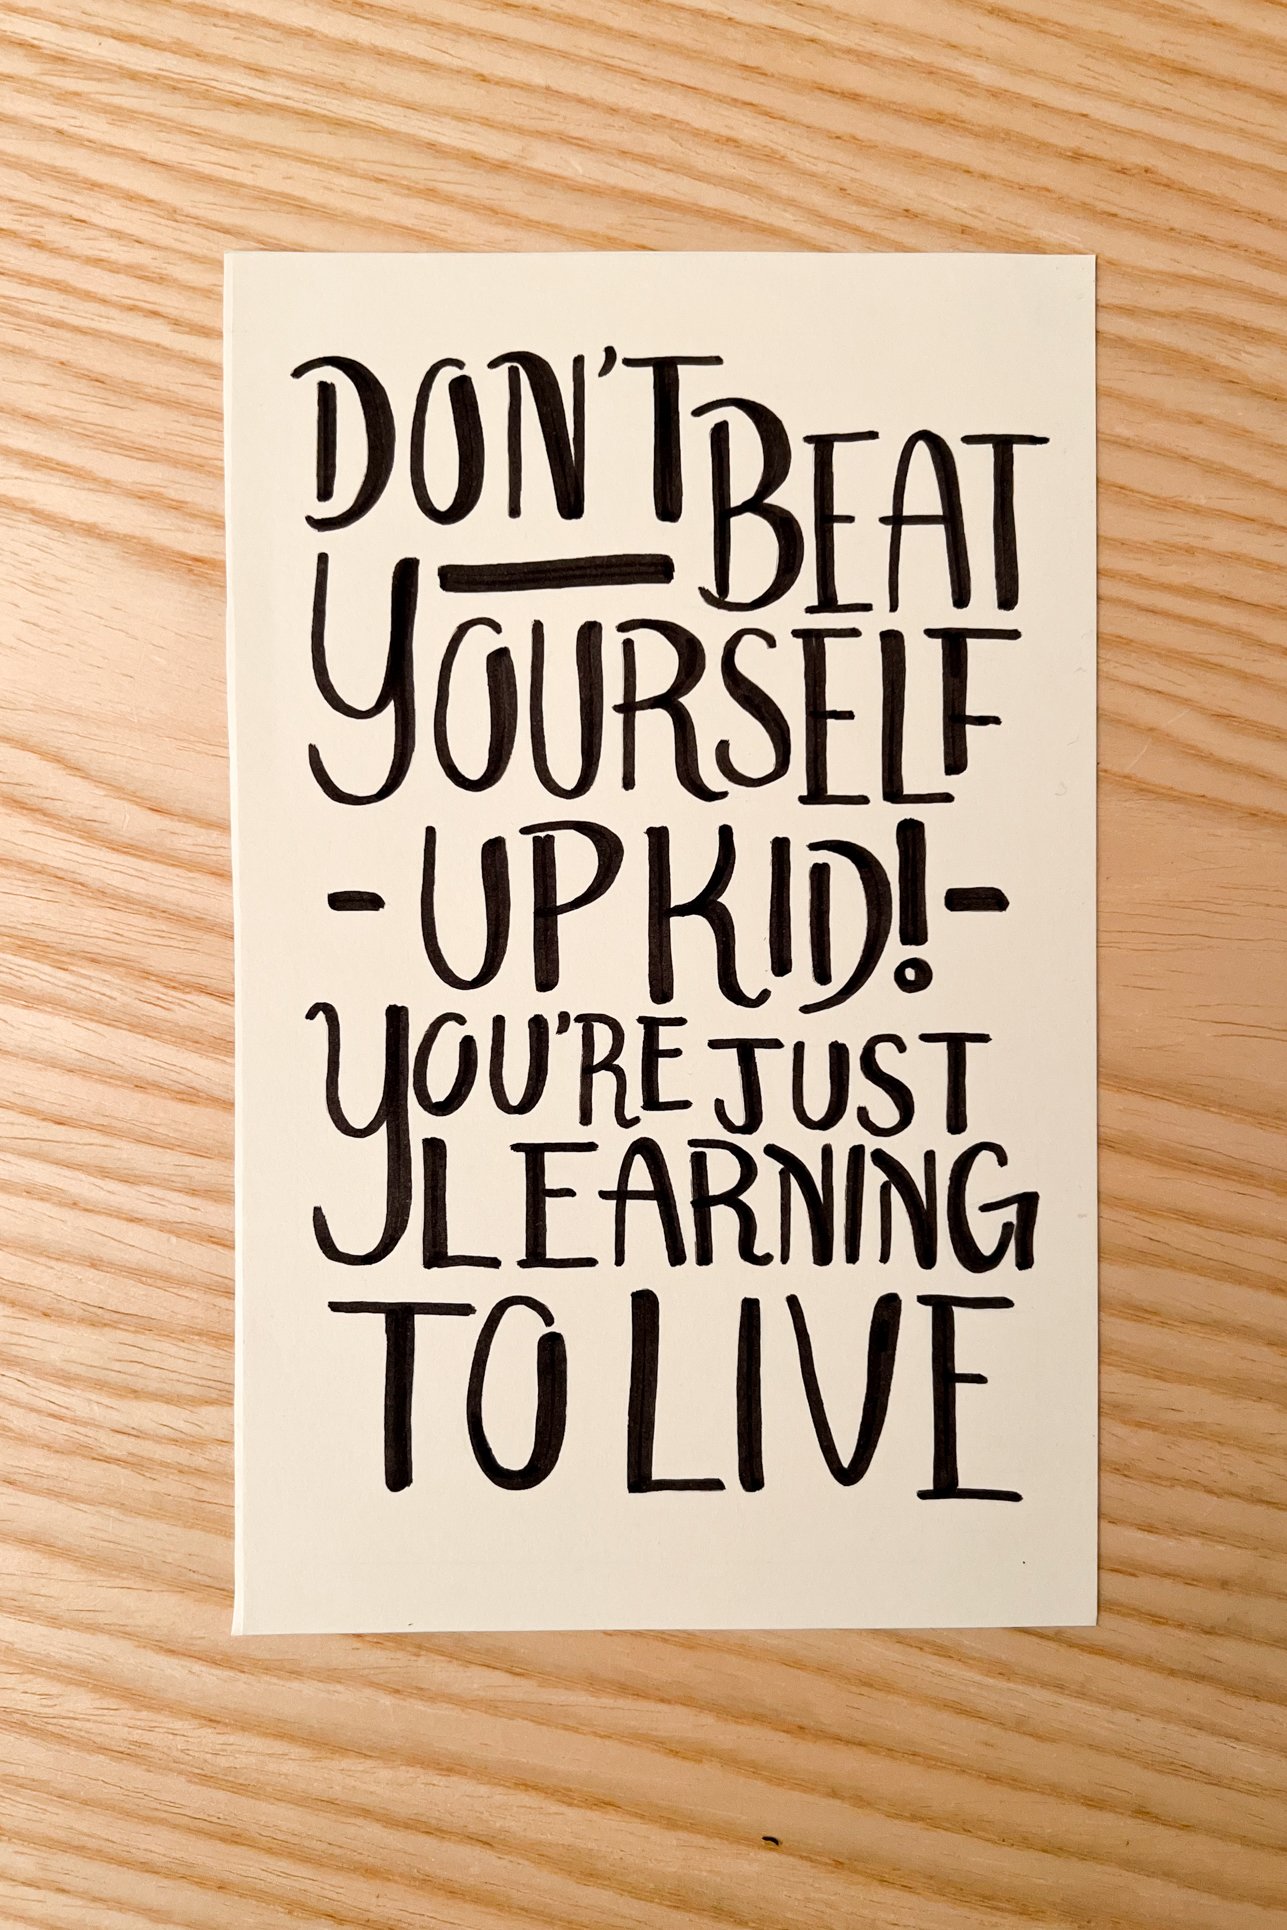 DON'T BEAT
YOURSELF
- UP KID! -
YOU'RE JUST
LEARNING
TO LIVE